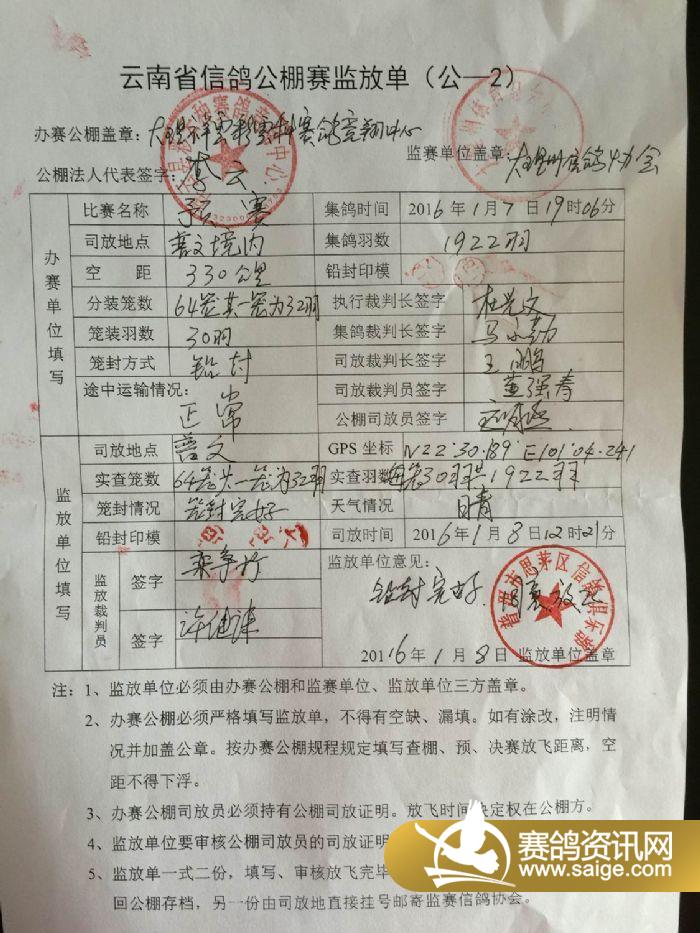 云南省信鸽公棚赛监放单（公—2）
办赛公棚盖章：大理祥云彩云种赛鸽竞翔中心
监赛单位盖章：大理州信鸽协会
公棚法人代表签字：
办赛单位填写
比赛名称 预赛 集鸽时间 2016年1月7日19时06分
司放地点 普文境内 集鸽羽数 1922羽
空距 330公里 铅封印模
分装笼数 64笼其一笼为32羽 执行裁判长签字 杜光文
笼装羽数 30羽 集鸽裁判长签字
笼封方式 铅封 司放裁判长签字 王鹏
途中运输情况： 正常 司放裁判员签字 董强春
公棚司放员签字
监放单位填写
司放地点 普文 GPS坐标 N22·30·189 E101·04·241
实查笼数 64笼共一笼为32羽 实查羽数 每笼30羽共1922羽
笼封情况 笼封完好 天气情况 晴
铅封印模 司放时间 2016年1月8日12时21分
监放裁判员
签字
签字
监放单位意见：
铅封完好．同意放飞
2016年1月8日 监放单位盖章
思茅区信鸽俱乐部
注：1、监放单位必须由办赛公棚和监赛单位、监放单位三方盖章。
2、办赛公棚必须严格填写监放单，不得有空缺、漏填。如有涂改，注明情
况并加盖公章。按办赛公棚规程规定填写查棚、预、决赛放飞距离，空
距不得下浮。
3、办赛公棚司放员必须持有公棚司放证明。放飞时间决定权在公棚方。
4、监放单位要审核公棚司放员的司放证明
5、监放单一式二份，填写、审核放飞完毕
回公棚存档，另一份由司放地直接挂号邮寄监赛信鸽协会。
赛鸽资讯网
www.saige.com